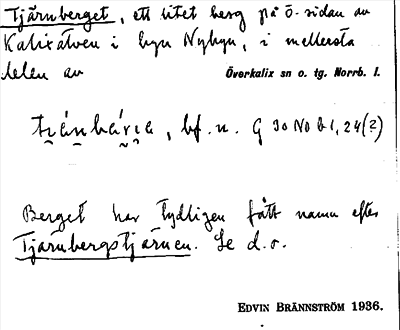 Tjärnberget, ett litet berg på ö. sidan av
Kalixälven i byn Nybyn, i mellersta
delen av Överkalix sn o. tg. Norrb. l.
bf. n. G 30 No b 1, 24(?)
Berget har tydligen fått namn efter
Tjärnbergstjärnen. Se d. o.
EDVIN BRÄNNSTRÖM 1936.